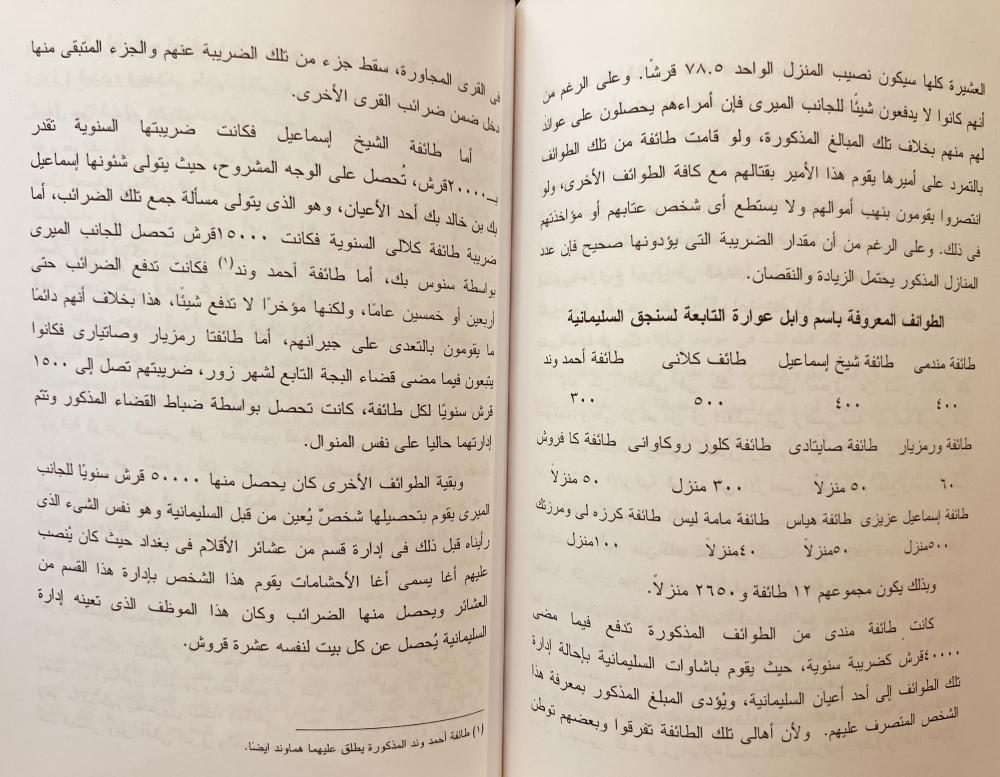 العشيرة كلها سيكون نصيب المنزل الواحد ٧٨.٥ قرشًا. وعلى الرغم من
أنهم كانوا لا يدفعون شيئًا للجانب الميرى فإن أمراءهم يحصلون على عوائد
لهم منهم بخلاف تلك المبالغ المذكورة، ولو قامت طائفة من تلك الطوائف
بالتمرد على أميرها يقوم هذا الأمير بقتالهم مع كافة الطوائف الأخرى، ولو
انتصروا يقومون بنهب أموالهم ولا يستطع أى شخص عتابهم أو مؤاخذتهم
فى ذلك. وعلى الرغم من أن مقدار الضريبة التى يؤدونها صحيح فإن عدد
المنازل المذكور يحتمل الزيادة والنقصان.
الطوائف المعروفة باسم وابل عوارة التابعة لسنجق السليمانية
طائفة مندمى طائفة شيخ إسماعيل طائف كلانى طائفة أحمد وند
٤٠٠ ٤٠٠ ٥٠٠ ٣٠٠
طائفة ورمزيار طائفة صايتادى طائفة كلور روكاوانى طائفة كا فروش
٦٠ ٥٠ منزلاً ٣٠٠ منزل ٥٠ منزلاً
طائفة إسماعيل عزيزى طائفة هياس طائفة مامة ليس طائفة كرزه لى ومرزتك
٥٠٠منزل ٥٠منزلاً ٤٠منزلاً ١٠٠منزل
وبذلك يكون مجموعهم ١٢ طائفة و ٢٦٥٠ منزلاً.
كانت طائفة مندى من الطوائف المذكورة تدفع فيما مضى
٤٠٠٠٠قرش كضريبة سنوية، حيث يقوم باشاوات السليمانية بإحالة إدارة
تلك الطوائف إلى أحد أعيان السليمانية، ويُؤدى المبلغ المذكور بمعرفة هذا
الشخص المتصرف عليهم. ولأن أهالى تلك الطائفة تفرقوا وبعضهم توطن
فى القرى المجاورة، سقط جزء من تلك الضريبة عنهم والجزء المتبقى منها
دخل ضمن ضرائب القرى الأخرى.
أما طائفة الشيخ إسماعيل فكانت ضريبتها السنوية تقدر
بـ٢٠٠٠٠قرش، تُحصل على الوجه المشروح، حيث يتولى شئونها إسماعيل
بك بن خالد بك أحد الأعيان، وهو الذى يتولى مسألة جمع تلك الضرائب، أما
ضريبة طائفة كلالى السنوية فكانت ١٥٠٠٠قرش تحصل للجانب الميرى
بواسطة سنوس بك، أما طائفة أحمد وند(١) فكانت تدفع الضرائب حتى
أربعين أو خمسين عامًا، ولكنها مؤخرًا لا تدفع شيئًا، هذا بخلاف أنهم دائمًا
ما يقومون بالتعدى على جيرانهم، أما طائفتا رمزيار وصاتيارى فكانوا
يتبعون فيما مضى قضاء البجة التابع لشهر زور، ضريبتهم تصل إلى ١٥٠٠
قرش سنويًا لكل طائفة، كانت تحصل بواسطة ضباط القضاء المذكور وتتم
إدارتهما حاليا على نفس المنوال.
وبقية الطوائف الأخرى كان يحصل منها ٥٠٠٠٠ قرش سنويًا للجانب
الميرى يقوم بتحصيلها شخصٌ يُعين من قبل السليمانية وهو نفس الشىء الذى
رأيناه قبل ذلك فى إدارة قسم من عشائر الأقلام فى بغداد حيث كان يُنصب
عليهم أغا يسمى أغا الأحشامات يقوم هذا الشخص بإدارة هذا القسم من
العشائر ويحصل منها الضرائب وكان هذا الموظف الذى تعينه إدارة
السليمانية يُحصل عن كل بيت لنفسه عشرة قروش.
(١) طائفة أحمد وند المذكورة يطلق عليهما هماوند ايضًا.